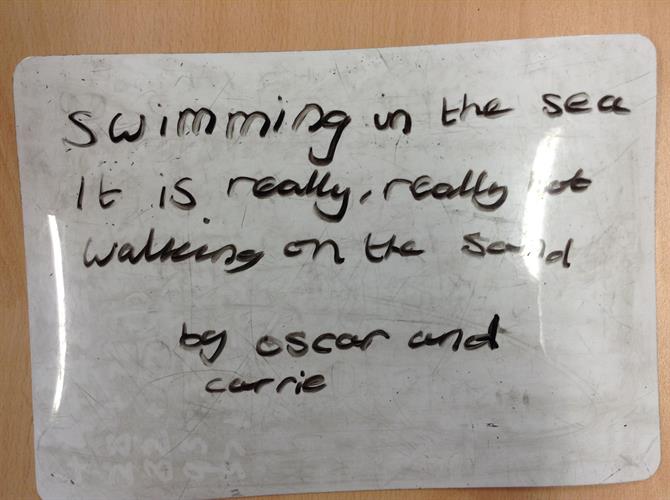 Swimming in the sea
It is really, really hot
walking on the sand
by oscar and
carrie